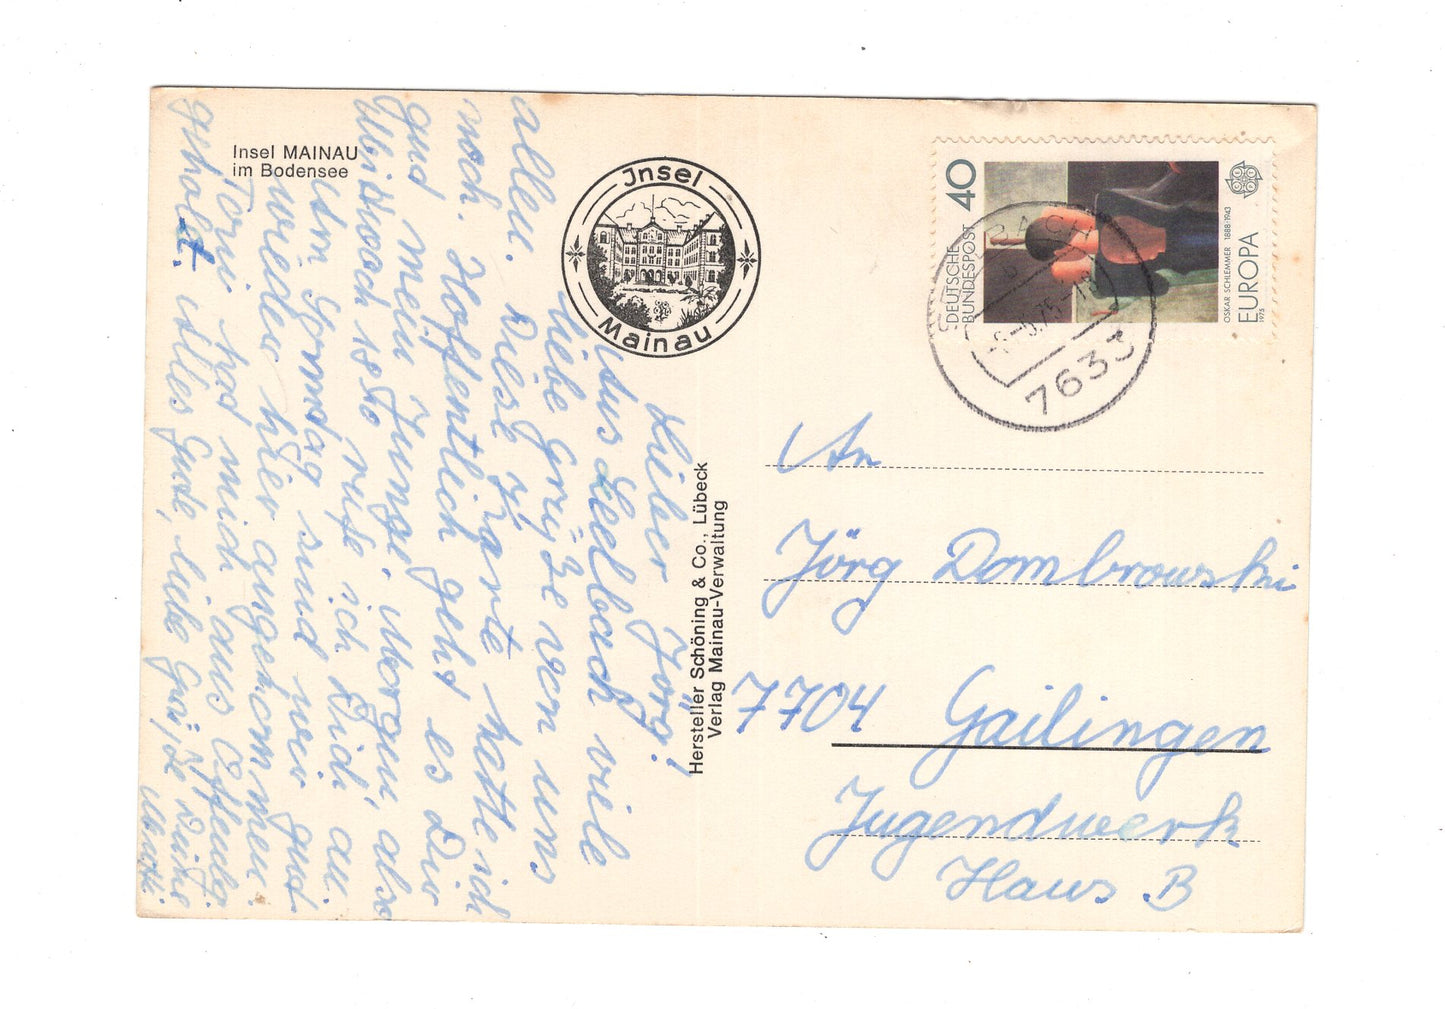 Insel MAINAU
im Bodensee
Jnsel
Mainau
Lieber Jörg!
Aus Seelbach viele
liebe Grüße von uns
allen. Diese Karte hatte ich
noch. Hoffentlich geht es Dir
gut mein Junge. Morgen, also
Mittwoch 18 rufe ich Dich an.
Am Sonntag sind wir gut
wieder hier angekommen.
Toni hat mich aus Offenbg.
geholt. Alles Gute, liebe Grüße Deine
Mutti.
Hersteller Schöning & Co., Lübeck
Verlag Mainau-Verwaltung
DEUTSCHE
BUNDESPOST 40
OSKAR SCHLEMMER 1888-1943
EUROPA
1975
BACH
b
75-18
7633
An
Jörg Dombrowski
7704 Gailingen
Jugendwerk
Haus B